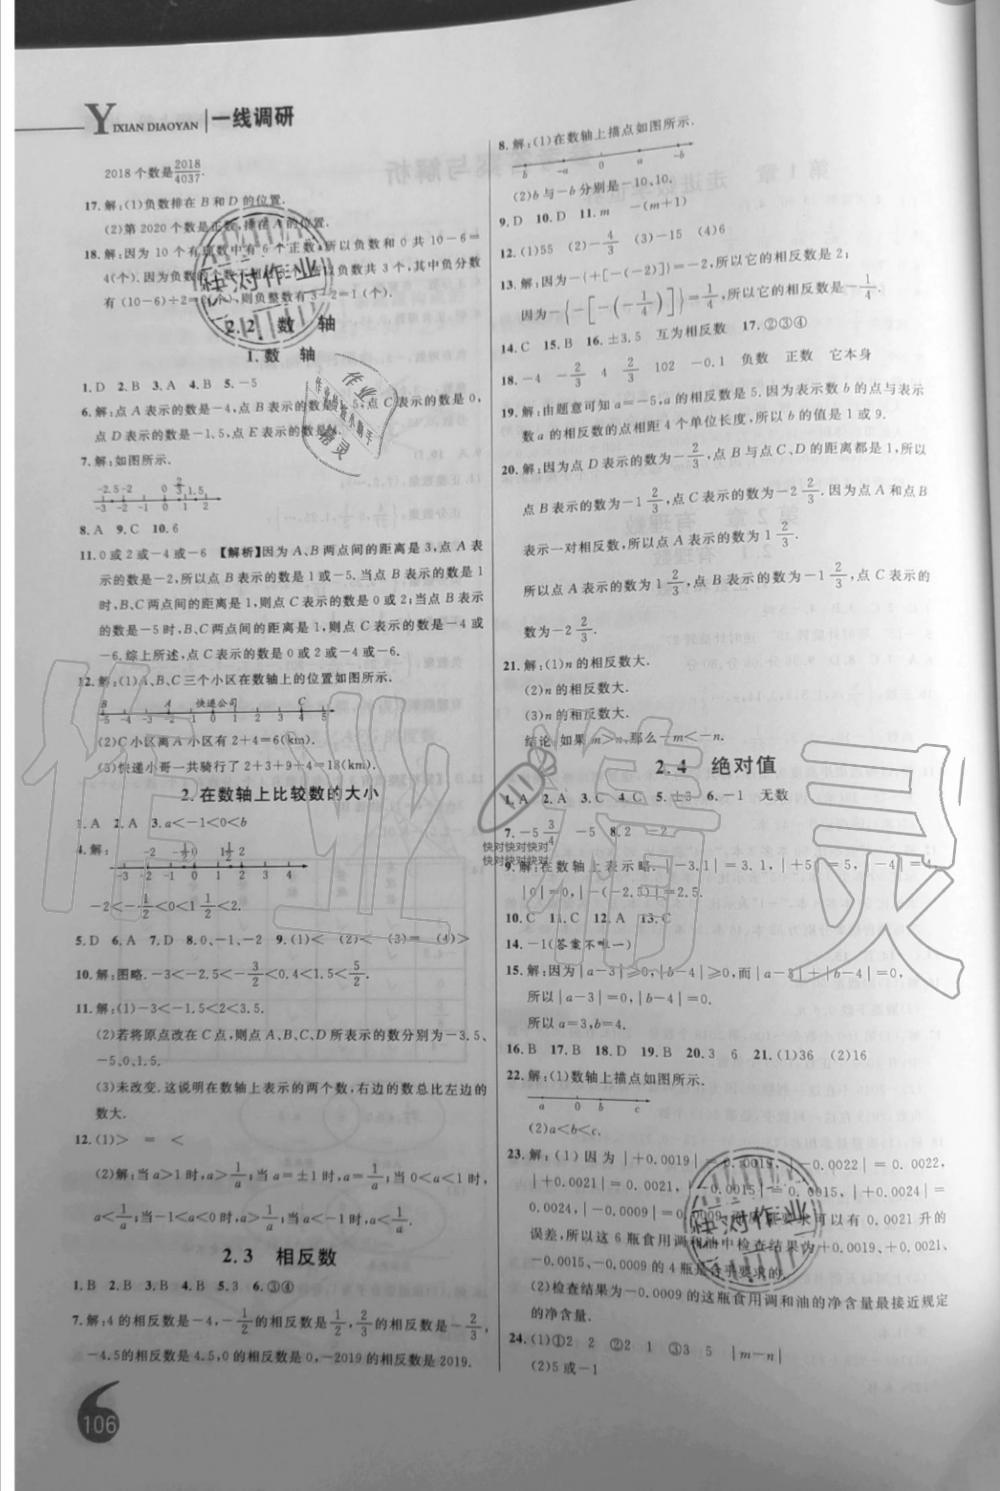 YIXIAN DIAOYAN 一线调研
2018 个数是2018/4037.
17.解:(1)负数排在 B 和 D 的位置.
(2)第 2020 个数是正数,排在 A 的位置.
18.解:因为 10 个有理数中有 6 个正数,所以负数和 0 共 10-6=
4(个).因为负数 共 3 个,其中负分数
有(10-6)÷2=2(个),则负整数有 3-2=1(个).
2.2 数 轴
1.数 轴
1.D 2.B 3.A 4.B 5.-5
6.解:点 A 表示的数是-4,点 B 表示的数是 .5,点 C 表示的数是 0,
点 D 表示的数是-1.5,点 E 表示的数是
7.解:如图所示.
-2.5 -2 0 2/3 1.5
-3 -2 -1 0 1 2
8.A 9.C 10.6
11.0 或 2 或-4 或-6 【解析】因为 A、B 两点间的距离是 3,点 A 表
示的数是-2,所以点 B 表示的数是 1 或-5.当点 B 表示的数是 1
时,B、C 两点间的距离是 1,则点 C 表示的数是 0 或 2;当点 B 表示
的数是-5 时,B、C 两点间的距离是 1,则点 C 表示的数是-4 或
-6.综上所述,点 C 表示的数是 0 或 2 或-4 或-6.
12.解:(1)A、B、C 三个小区在数轴上的位置如图所示.
B A 快递公司 C
-5 -4 -3 -2 -1 0 1 2 3 4 5
(2)C 小区离 A 小区有 2+4=6(km).
(3)快递小哥一共骑行了 2+3+9+4=18(km).
2.在数轴上比较数的大小
1.A 2.A 3.a<-1<0<b
4.解: -2 -1/2 0 1 1/2 2
-3 -2 -1 0 1 2 3 4
-2<-1/2<0<1 1/2<2.
5.D 6.A 7.D 8.0,-1,-2 9.(1)< (2)< (3)= (4)>
10.解:图略.-3<-2.5<-3/2<0.4<1.5<5/2.
11.解:(1)-3<-1.5<2<3.5.
(2)若将原点改在 C 点,则点 A、B、C、D 所表示的数分别为-3.5,
-5,0,1.5.
(3)未改变.这说明在数轴上表示的两个数,右边的数总比左边的
数大.
12.(1)> = <
(2)解:当 a>1 时,a>1/a;当 a=±1 时,a=1/a;当 0<a<1 时,
a<1/a;当-1<a<0 时,a>1/a;当 a<-1 时,a<1/a.
2.3 相反数
1.B 2.B 3.B 4.B 5.3 6.③④
7.解:4 的相反数是-4,-1/2的相反数是1/2,2/3的相反数是-2/3,
-4.5的相反数是 4.5,0 的相反数是 0,-2019 的相反数是 2019.
106
8.解:(1)在数轴上描点如图所示.
b -a 0 a -b
(2)b 与-b 分别是-10,10.
9.D 10.D 11.m -(m+1)
12.(1)55 (2)-4/3 (3)-15 (4)6
13.解:因为-{+[-(-2)]}=-2,所以它的相反数是 2;
因为-{-[-(-1/4)]}=1/4,所以它的相反数是-1/4.
14.C 15.B 16.±3.5 互为相反数 17.②③④
18.-4 -2/3 4 2/3 102 -0.1 负数 正数 它本身
19.解:由题意可知 a=-5,a 的相反数是 5.因为表示数 b 的点与表示
数 a 的相反数的点相距 4 个单位长度,所以 b 的值是 1 或 9.
20.解:因为点 D 表示的数为-2/3,点 B 与点 C、D 的距离都是 1,所以
点 B 表示的数为-1 2/3,点 C 表示的数为-2 2/3.因为点 A 和点 B
表示一对相反数,所以点 A 表示的数为 1 2/3.
所以点 A 表示的数为 1 2/3,点 B 表示的数为-1 2/3,点 C 表示的
数为-2 2/3.
21.解:(1)n 的相反数大.
(2)n 的相反数大.
(3)n 的相反数大.
结论:如果 m>n,那么-m<-n.
2.4 绝对值
1.A 2.A 3.C 4.C 5.±3 6.-1 无数
7.-5 3/4 -5 8.2 =2
快对快对快对
快对快对快对
9.解:在数轴上表示略.|-3.1|=3.1,|+5|=5,|-4|=
|0|=0,|-(-2.5)|=2.5.
10.C 11.C 12.A 13.C
14.-1(答案不唯一)
15.解:因为|a-3|≥0,|b-4|≥0,而|a-3|+|b-4|=0,
所以|a-3|=0,|b-4|=0.
所以 a=3,b=4.
16.B 17.B 18.D 19.B 20.3 6 21.(1)36 (2)16
22.解:(1)数轴上描点如图所示.
a 0 b c
(2)a<b<c.
23.解:(1)因为|+0.0019|=0.0019,|-0.0022|=0.0022,
|+0.0021|=0.0021,|-0.0015|=0.0015,|+0.0024|=
0.0024,|-0.0009|=0.0009, 要求可以有 0.0021 升的
误差,所以这 6 瓶食用调和油中检查结果为+0.0019、+0.0021、
-0.0015、-0.0009 的 4 瓶是合乎要求的.
(2)检查结果为-0.0009 的这瓶食用调和油的净含量最接近规定
的净含量.
24.(1)①2 2 ②2 1 ③3 5 |m-n|
(2)5 或-1
快对作业
作业精灵